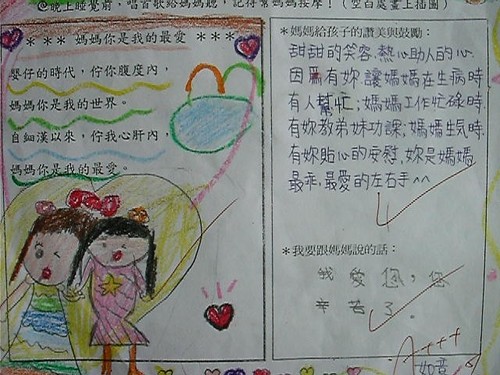 @晚上睡覺前，唱首歌給媽媽聽，記得幫媽媽按摩！（空白處畫上插圖）
＊＊＊ 媽媽你是我的最愛 ＊＊＊
嬰仔的時代，佇你腹度內，
媽媽你是我的世界。
自細漢以來，佇我心肝內，
媽媽你是我的最愛。
＊媽媽給孩子的讚美與鼓勵：
甜甜的笑容.熱心助人的心.
因為有妳.讓媽媽在生病時
有人幫忙；媽媽工作忙碌時.
有妳教弟妹功課；媽媽生氣時.
有妳貼心的安慰，妳是媽媽
最乖.最愛的左右手^^
＊我要跟媽媽說的話：
我愛您，您
辛苦了。
A+++